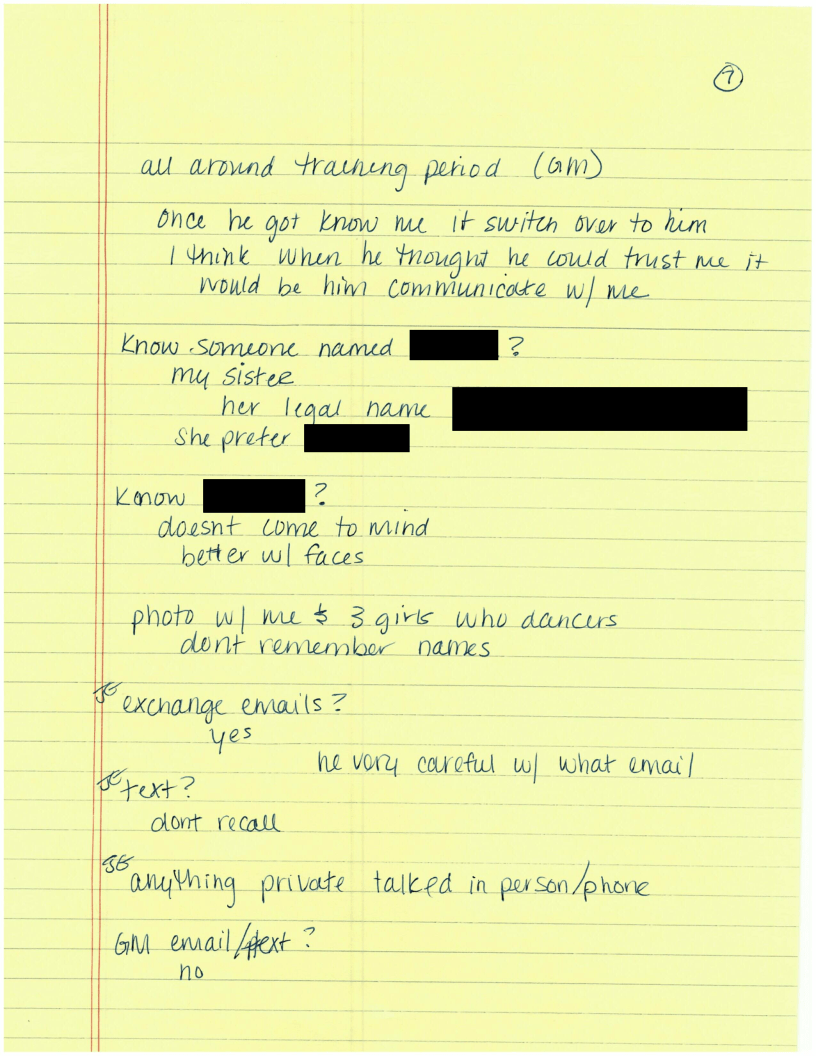 7
all around training period (GM)
Once he got know me it switch over to him
I think when he thought he could trust me it
would be him communicate w/ me
Know someone named ?
my sister
her legal name
she prefer
Know ?
doesnt come to mind
better w/ faces
photo w/ me & 3 girls who dancers
dont remember names
JE exchange emails?
yes
he very careful w/ what email
JE text?
dont recall
JE anything private talked in person/phone
GM email/text?
no